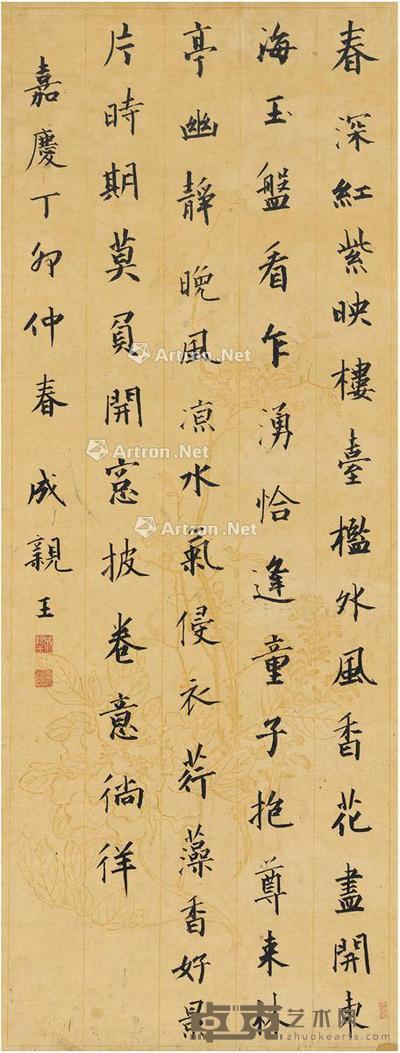 春深紅紫映樓臺檻外風香花盡開東
海玉盤看乍湧恰逢童子抱尊来林
亭幽靜晚風涼水氣侵衣荇藻香好景
片時期莫負開窓披卷意徜徉
嘉慶丁卯仲春 成親王
Artron.Net
Artron.Net
Artron.Net
Artron.Net
卓克艺术网
www.zhuokearts.com